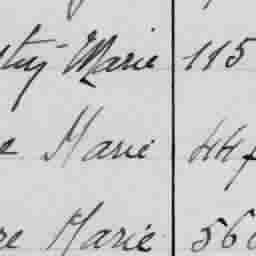 Marie 115
Marie 44
Marie 56